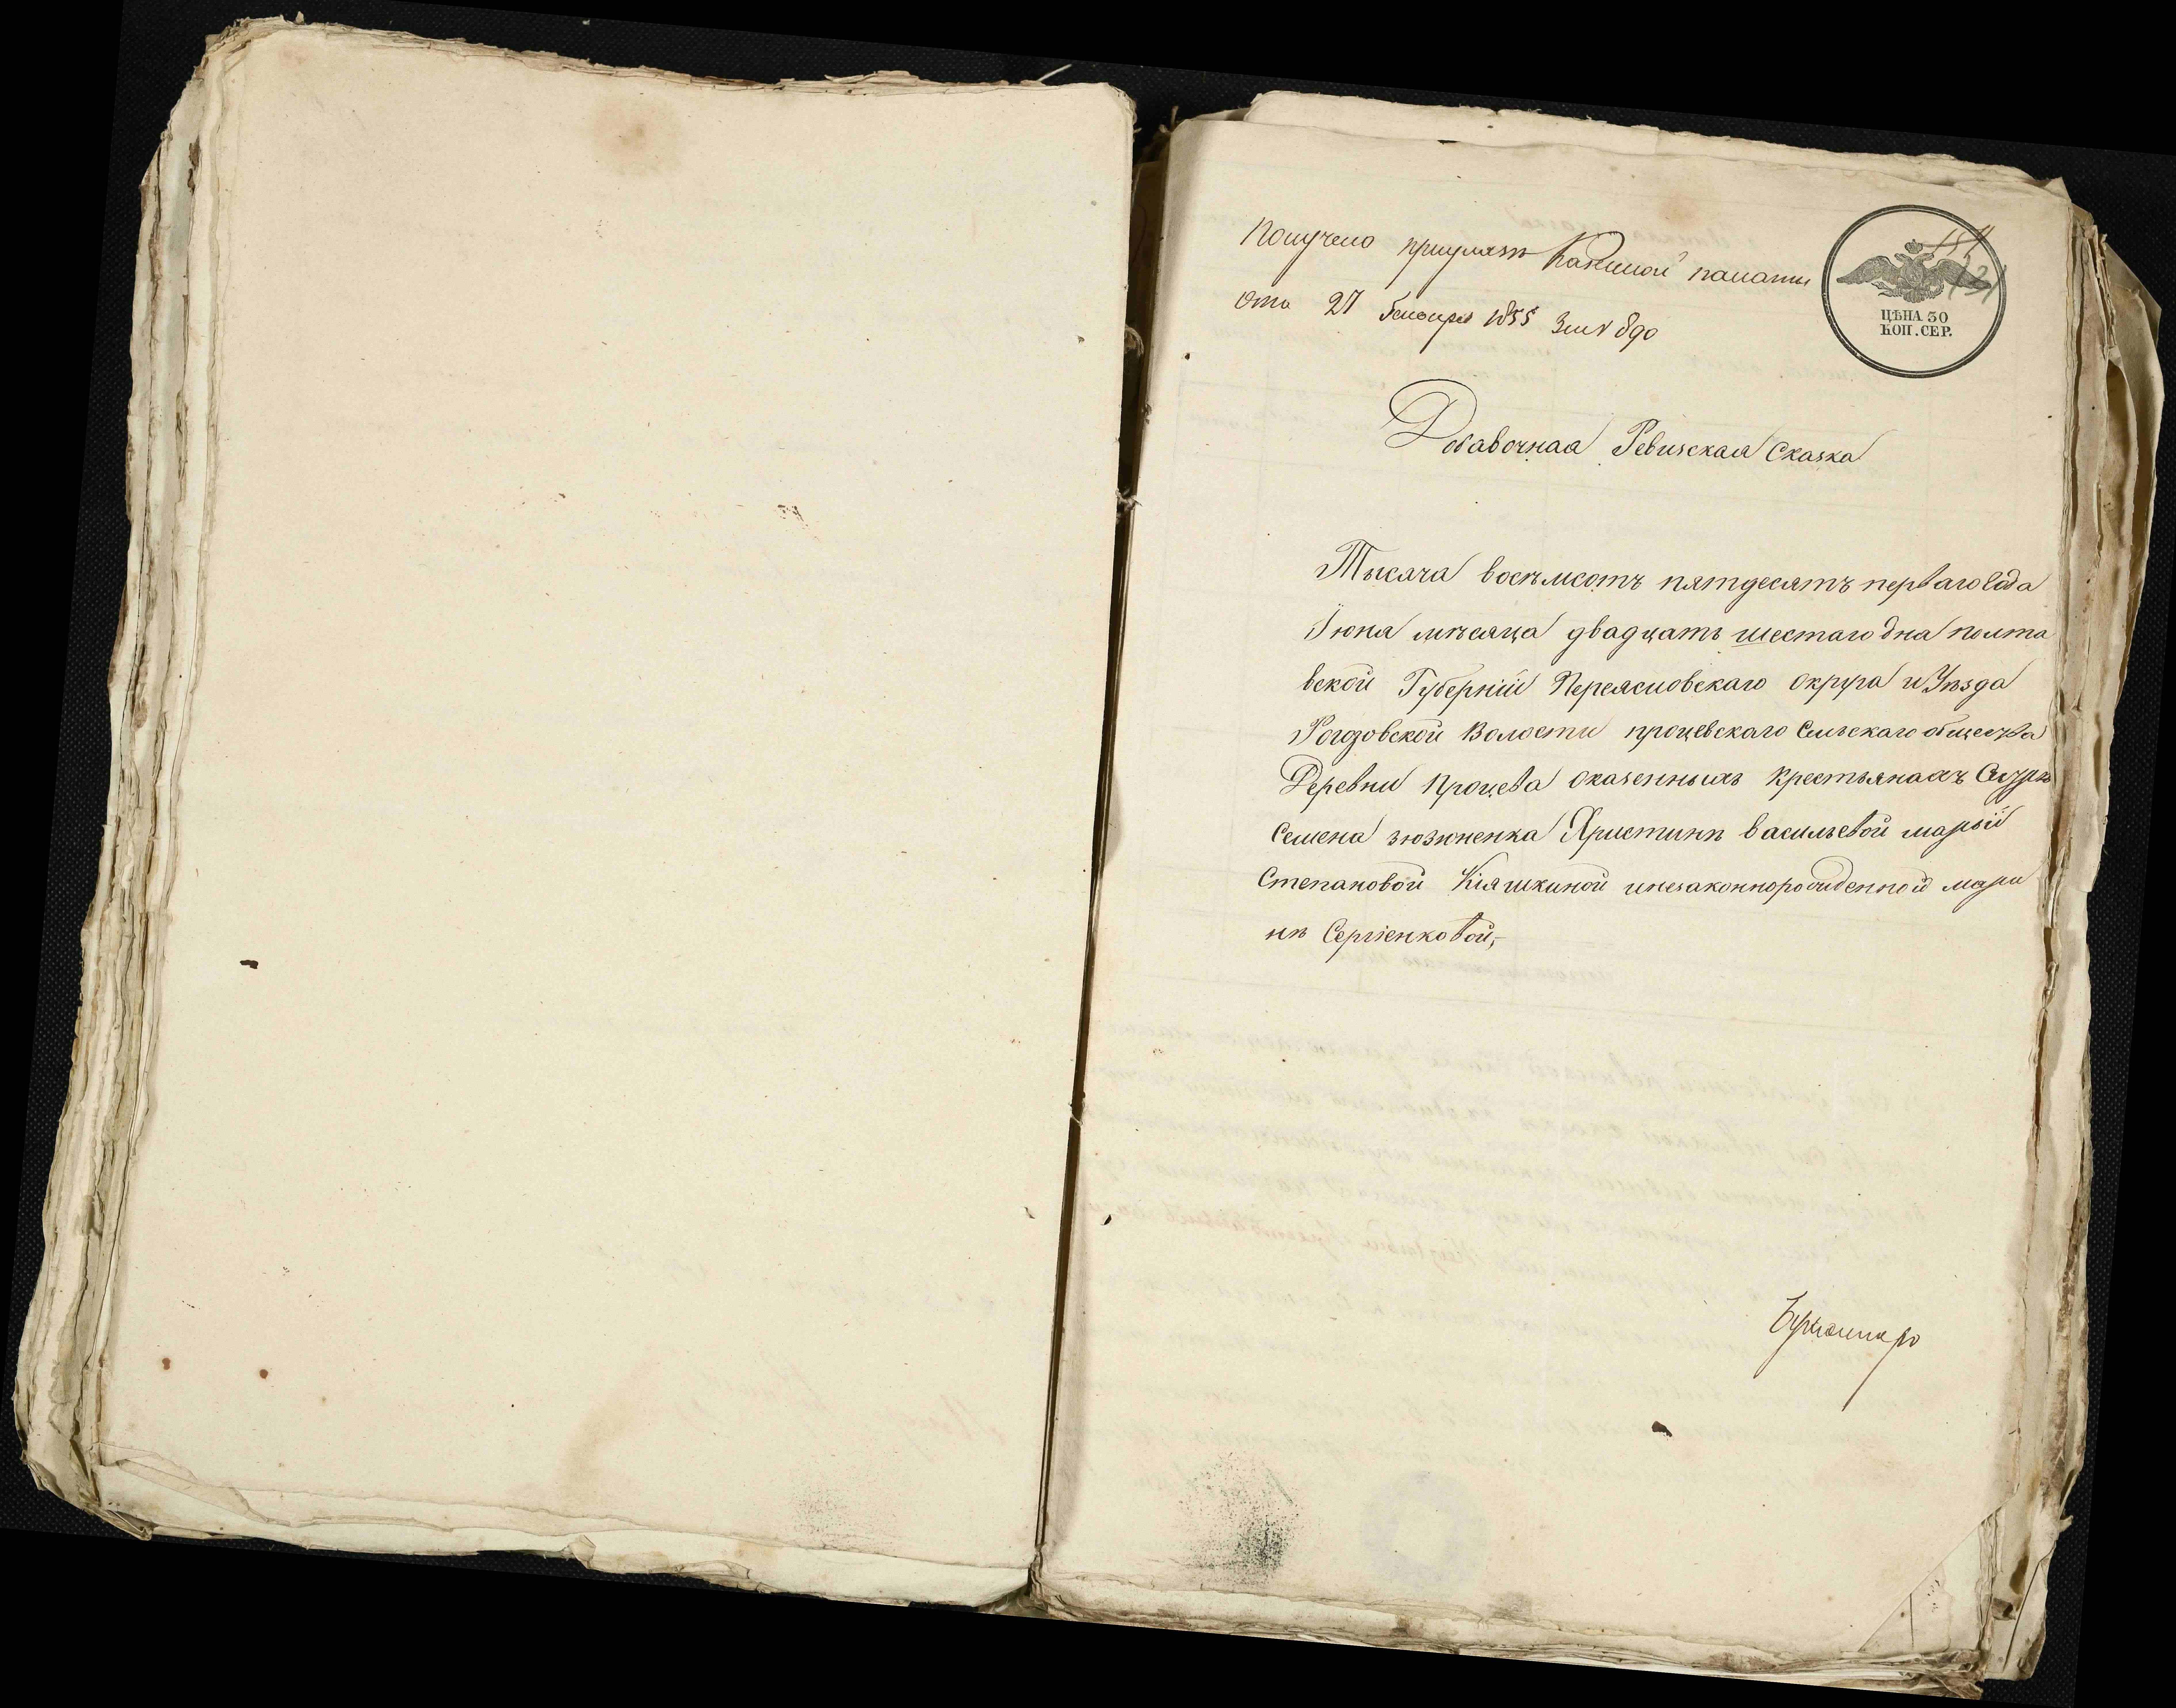 Получено при указѣ Казенной палаты
отъ 27 Генваря 1855 за № 890
151
131
ЦѢНА 30
КОП. СЕР.
Добавочная Ревизская Сказка
Тысяча восѣмсотъ пятдесятъ перваго года
Іюня мѣсяца двадцать шестаго дна полта
вской Губерніи Переясловскаго округа и Уѣзда
Рогозовской Волости процевскаго Сельскаго общества
Деревни Процева оказенныхъ крестьянахъ
Семена зюзюненка Христинѣ васильевой марьи
Степановой Кіяшкиной инезаконнорожденной мари
нѣ Сергіенковой,-